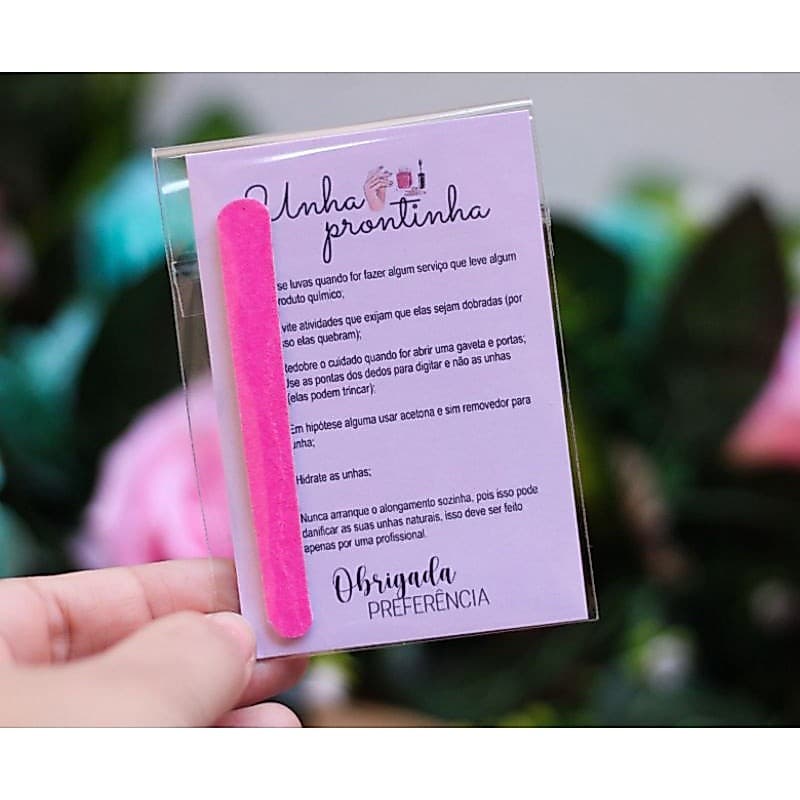 Unha
prontinha
se luvas quando for fazer algum serviço que leve algum
roduto químico;
vite atividades que exijam que elas sejam dobradas (por
sso elas quebram);
edobre o cuidado quando for abrir uma gaveta e portas;
Use as pontas dos dedos para digitar e não as unhas
(elas podem trincar);
Em hipótese alguma usar acetona e sim removedor para
unha;
Hidrate as unhas;
Nunca arranque o alongamento sozinha, pois isso pode
danificar as suas unhas naturais, isso deve ser feito
apenas por uma profissional.
Obrigada
PREFERÊNCIA